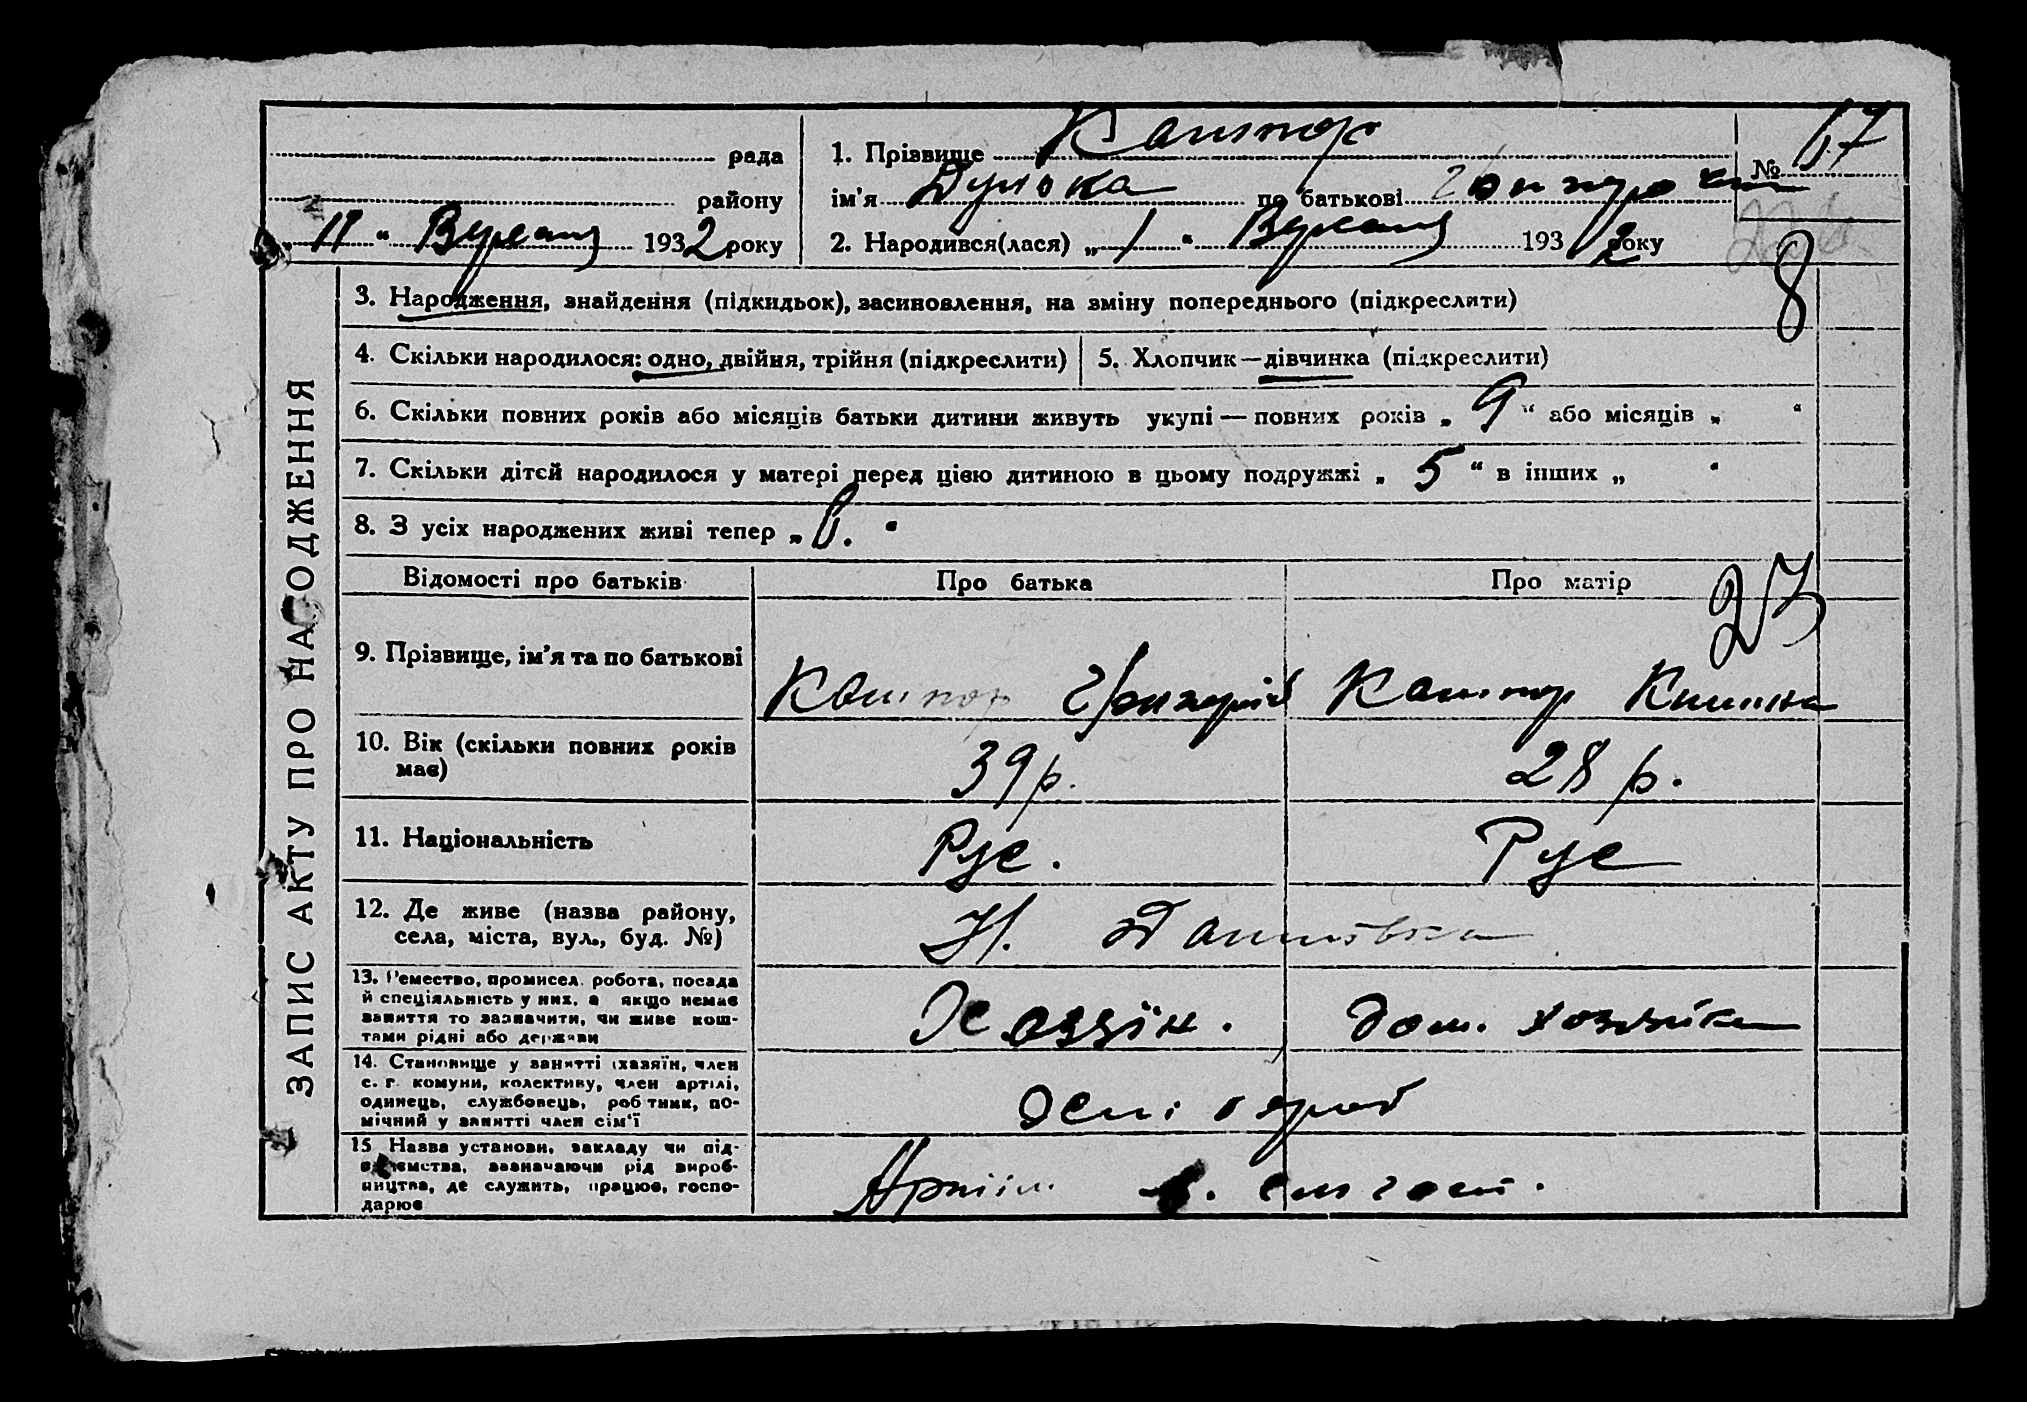 рада
1. Прізвище Каштор
№ 17
району
ім'я по батькові
„11“ Вересня 1932 року
2. Народився(лася) „1“ Вересня 1932 року
8
ЗАПИС АКТУ ПРО НАРОДЖЕННЯ
3. Народження, знайдення (підкидьок), засиновлення, на зміну попереднього (підкреслити)
4. Скільки народилося: одно, двійня, трійня (підкреслити)
5. Хлопчик — дівчинка (підкреслити)
6. Скільки повних років або місяців батьки дитини живуть укупі — повних років „9“ або місяців „ “
7. Скільки дітей народилося у матері перед цією дитиною в цьому подружжі „5“ в інших „ “
8. З усіх народжених живі тепер „ “
Відомості про батьків
Про батька
Про матір
23
9. Прізвище, ім'я та по батькові
Каштор Григорій
Каштор
10. Вік (скільки повних років має)
39 р.
28 р.
11. Національність
Рус.
Рус
12. Де живе (назва району, села, міста, вул., буд. №)
Н.
13. Ремество, промисел, робота, посада й спеціяльність у них, а якщо немає заняття то зазначити, чи живе коштами рідні або держави
Хазяїн.
Дом. хозяйка
14. Становище у занятті (хазяїн, член с. г. комуни, колективу, член артілі, одинець, службовець, робітник, помічний у занятті член сім'ї
15 Назва установи, закладу чи підприємства, зазначаючи рід виробництва, де служить, працює, господарює